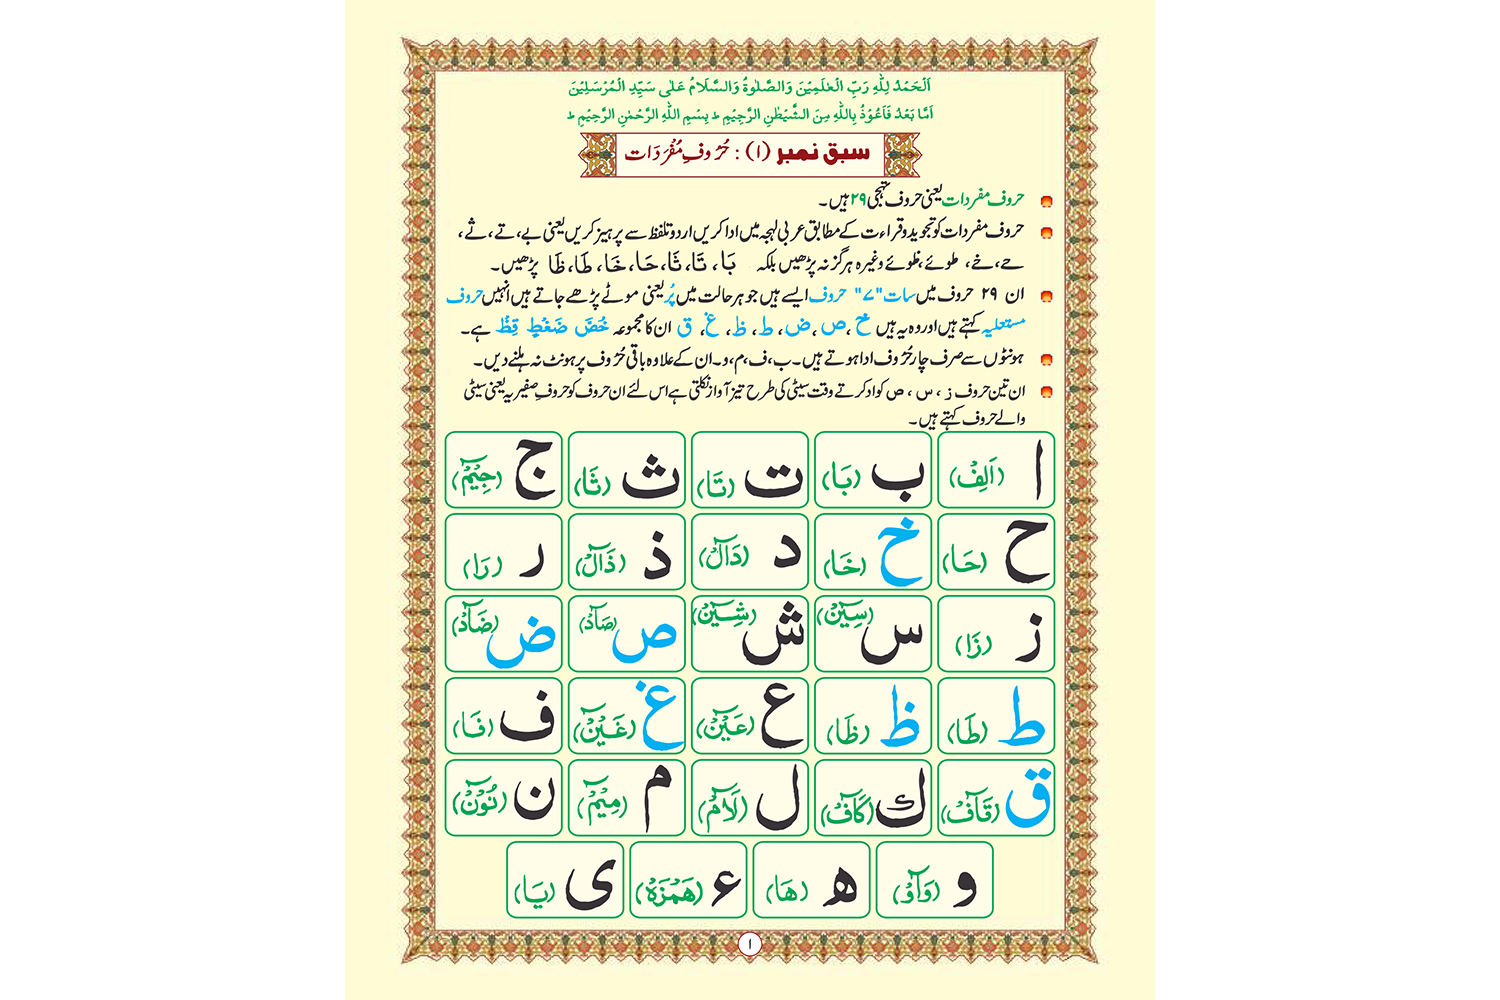 اَلْحَمْدُ لِلّٰهِ رَبِّ الْعٰلَمِيْنَ وَالصَّلٰوةُ وَالسَّلَامُ عَلٰى سَيِّدِ الْمُرْسَلِيْنَ
اَمَّا بَعْدُ فَاَعُوْذُ بِاللّٰهِ مِنَ الشَّيْطٰنِ الرَّجِيْمِ ؕ بِسْمِ اللّٰهِ الرَّحْمٰنِ الرَّحِيْمِ ؕ
سبق نمبر (۱) : حُرُوفِ مُفْرَدَات
حروف مفردات یعنی حروف تہجی ۲۹ ہیں۔
حروف مفردات کو تجوید و قراءت کے مطابق عربی لہجہ میں ادا کریں اردو تلفظ سے پرہیز کریں یعنی بے، تے، ثے،
حے، خے، طوئے، ظوئے وغیرہ ہرگز نہ پڑھیں بلکہ بَا، تَا، ثَا، حَا، خَا، طَا، ظَا پڑھیں۔
ان ۲۹ حروف میں سات "۷" حروف ایسے ہیں جو ہر حالت میں پُر یعنی موٹے پڑھے جاتے ہیں انہیں حروف
مستعلیہ کہتے ہیں اور وہ یہ ہیں خ، ص، ض، ط، ظ، غ، ق ان کا مجموعہ خُصَّ ضَغْطٍ قِظْ ہے۔
ہونٹوں سے صرف چار حُرُوف ادا ہوتے ہیں۔ ب، ف، م، و۔ ان کے علاوہ باقی حُرُوف پر ہونٹ نہ ہلنے دیں۔
ان تین حروف ز، س، ص کو اد کرتے وقت سیٹی کی طرح تیز آواز نکلتی ہے اس لئے ان حروف کو حروفِ صفیریہ یعنی سیٹی
والے حروف کہتے ہیں۔
ا (اَلِفْ) ب (بَا) ت (تَا) ث (ثَا) ج (جِيْٓمْ)
ح (حَا) خ (خَا) د (دَآلْ) ذ (ذَآلْ) ر (رَا)
ز (زَا) س (سِيْٓنْ) ش (شِيْٓنْ) ص (صَآدْ) ض (ضَآدْ)
ط (طَا) ظ (ظَا) ع (عَيْٓنْ) غ (غَيْٓنْ) ف (فَا)
ق (قَآفْ) ك (كَآفْ) ل (لَآمْ) م (مِيْٓمْ) ن (نُوْٓنْ)
و (وَآوْ) ھ (ھَا) ء (هَمْزَهْ) ی (يَا)
۱